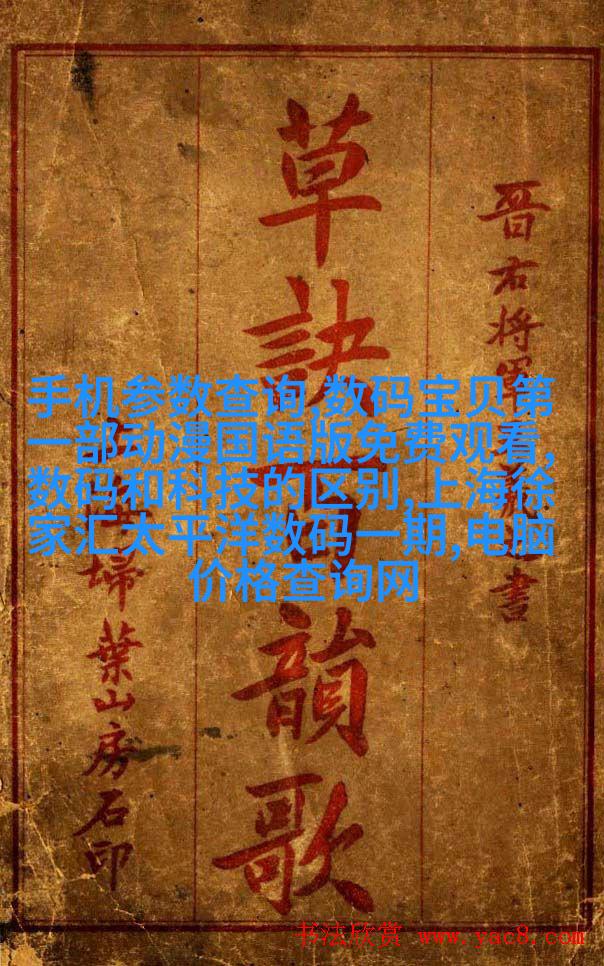 晋右将軍書
草訣百韻歌
掃葉山房石印
手机参数查询,数码宝贝第
一部动漫国语版免费观看,
数码和科技的区别,上海徐
家汇太平洋数码一期,电脑
价格查询网
书法欣赏 www.yac8.com